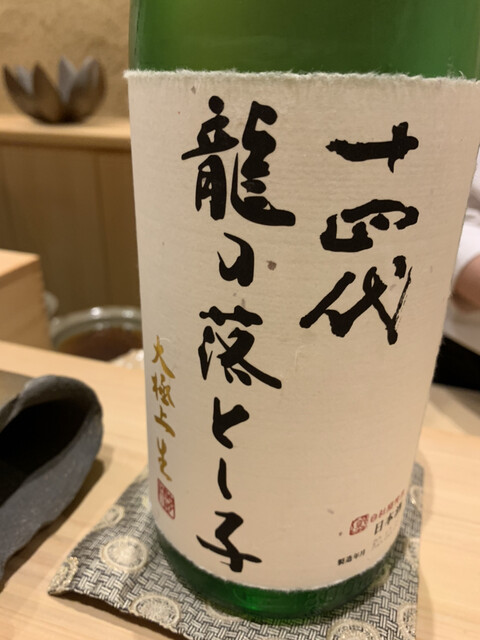 十四代
龍の落とし子
大極上生
日本酒
製造年月